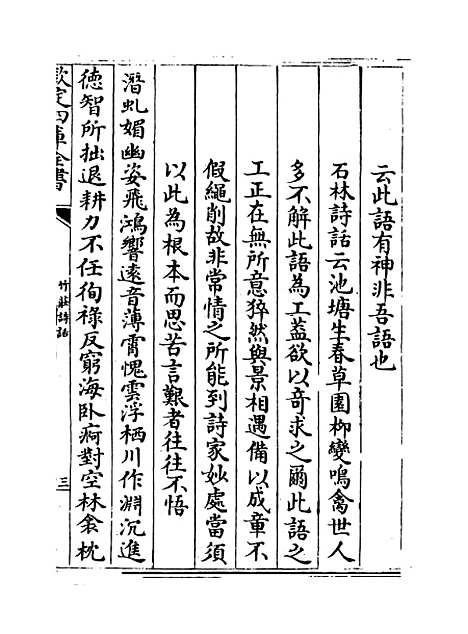 云此語有神非吾語也
石林詩話云池塘生春草園柳變鳴禽世人
多不解此語為工蓋欲以奇求之爾此語之
工正在無所意猝然與景相遇備以成章不
假繩削故非常情之所能到詩家妙處當須
以此為根本而思苦言艱者往往不悟
潛虬媚幽姿飛鴻響遠音薄霄愧雲浮栖川作淵沉進
德智所拙退耕力不任徇祿反窮海卧痾對空林衾枕
欽定四庫全書
竹莊詩話
三